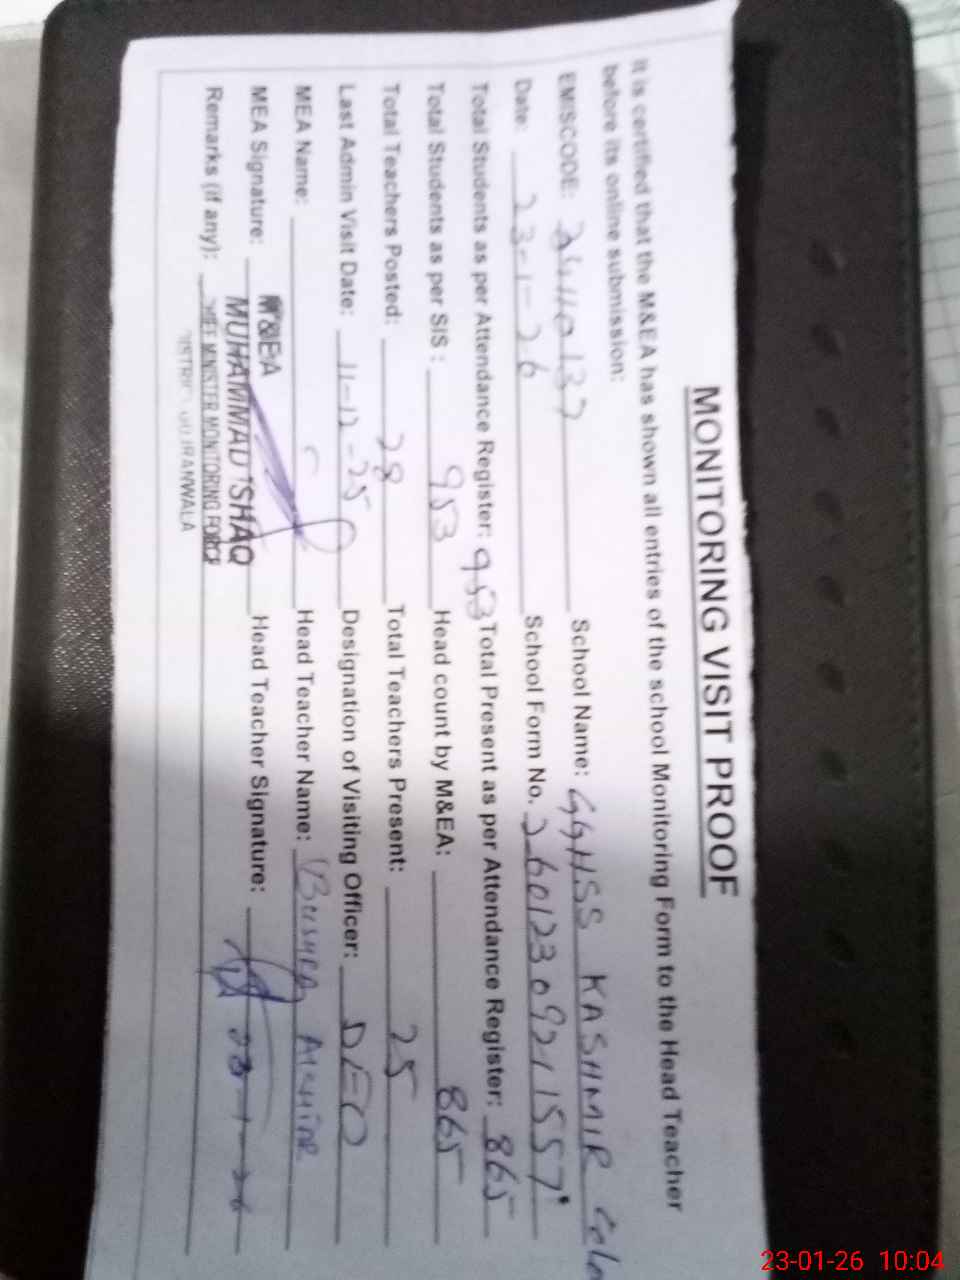 MONITORING VISIT PROOF
It is certified that the M&EA has shown all entries of the school Monitoring Form to the Head Teacher
before its online submission:
EMISCODE: 34110137 School Name: GGHSS KASHMIR Colo
Date: 23-1-26 School Form No. 2601230921557
Total Students as per Attendance Register: 953 Total Present as per Attendance Register: 865
Total Students as per SIS : 953 Head count by M&EA: 865
Total Teachers Posted: 28 Total Teachers Present: 25
Last Admin Visit Date: 11-12-25 Designation of Visiting Officer: DEO
MEA Name: Head Teacher Name: Bushra
MEA Signature: M&EA Head Teacher Signature: 23-1-26
MUHAMMAD ISHAQ
Remarks (if any): CHIEF MINISTER MONITORING FORCE
DISTRICT GUJRANWALA
23-01-26 10:04